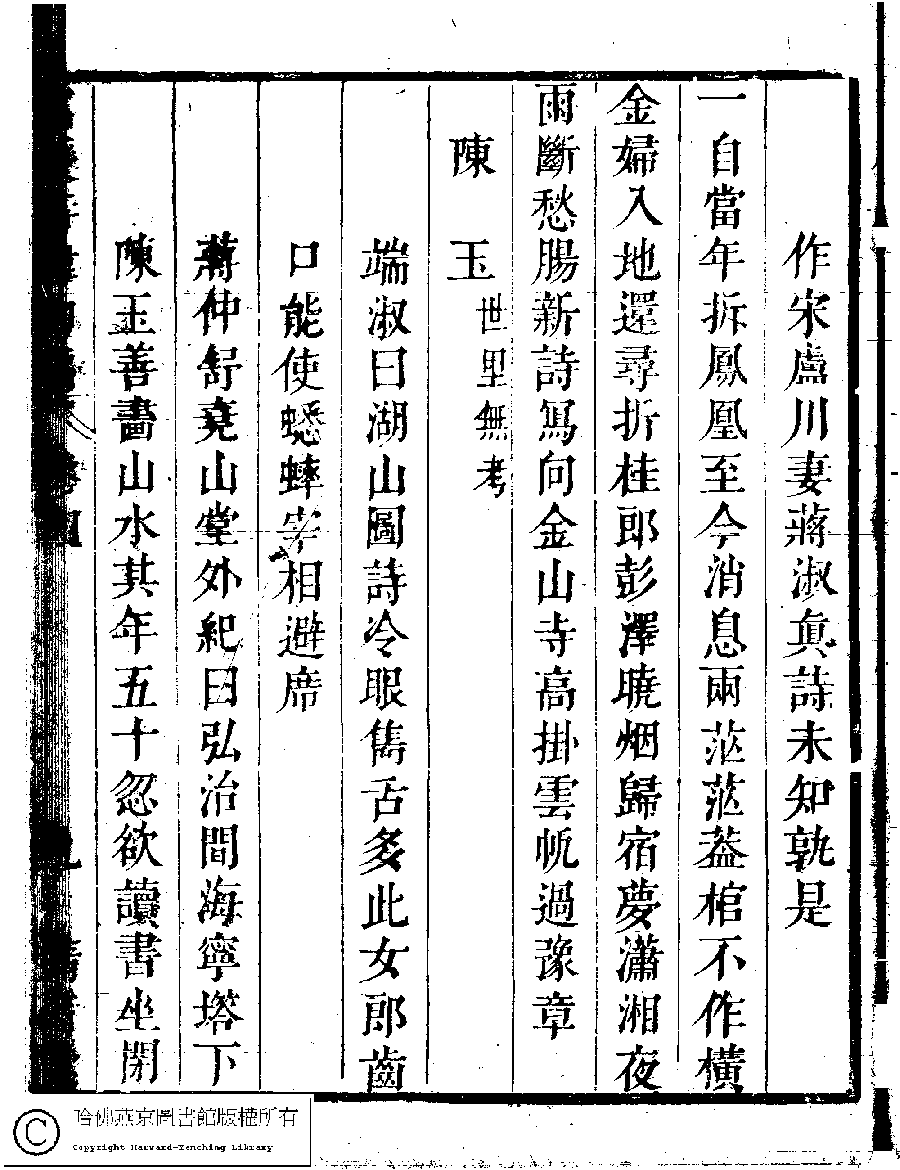 作宋盧川妻蔣淑眞詩未知孰是
一自當年拆鳳凰至今消息兩茫茫葢棺不作橫
金婦入地還尋折桂郎彭澤曉烟歸宿夢瀟湘夜
雨斷愁腸新詩寫向金山寺高掛雲帆過豫章
陳玉世里無考
端淑曰湖山圖詩冷眼雋舌多此女郎齒
口能使蟋蟀宰相避席
蔣仲舒堯山堂外紀曰弘治間海寧塔下
陳玉善畵山水其年五十忽欲讀書坐閉
哈佛燕京圖書館版權所有
Copyright Harvard-Yenching Library